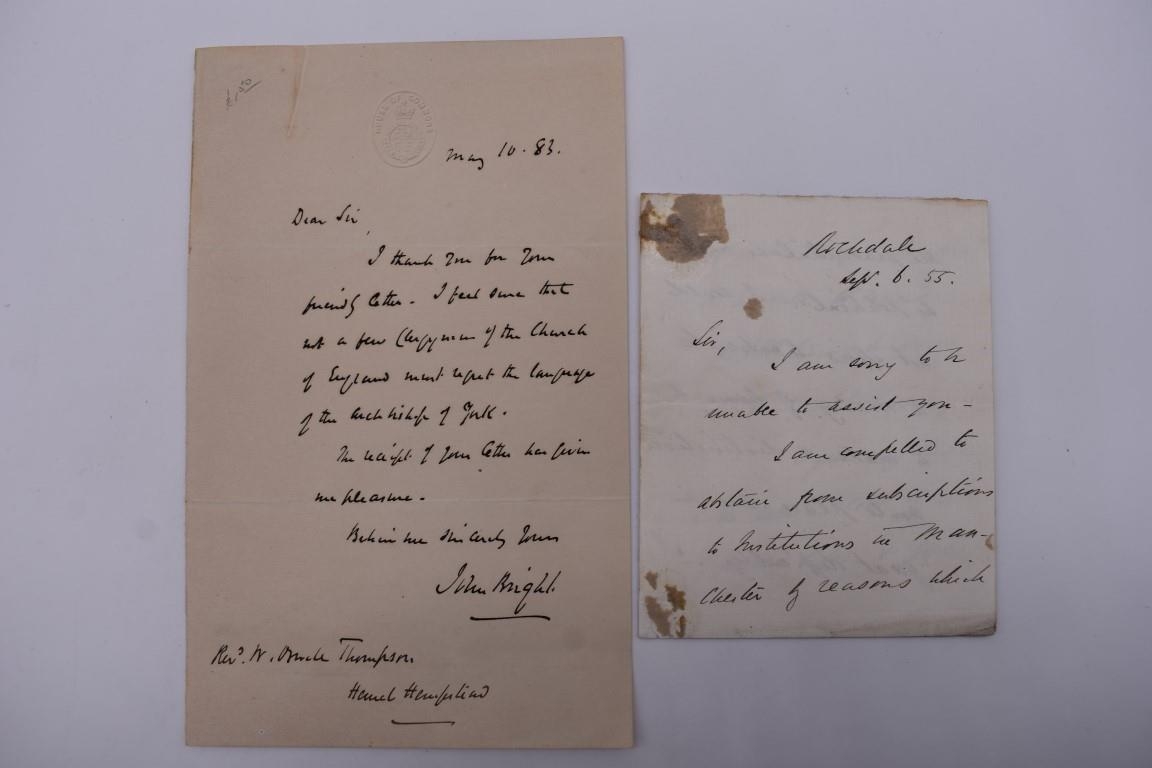 HOUSE OF COMMONS
May 10. 83.
Dear Sir,
I thank you for your
friendly letter. I feel sure that
not a few Clergymen of the Church
of England must regret the language
of the Archbishop of York.
The receipt of your letter has given
me pleasure.
Believe me sincerely yours
John Bright.
Revd. W. Thompson
Hemel Hempstead
Rochdale
Sept. 6. 55.
Sir,
I am sorry to be
unable to assist you -
I am compelled to
abstain from subscriptions
to Institutions in Man-
chester by reasons which